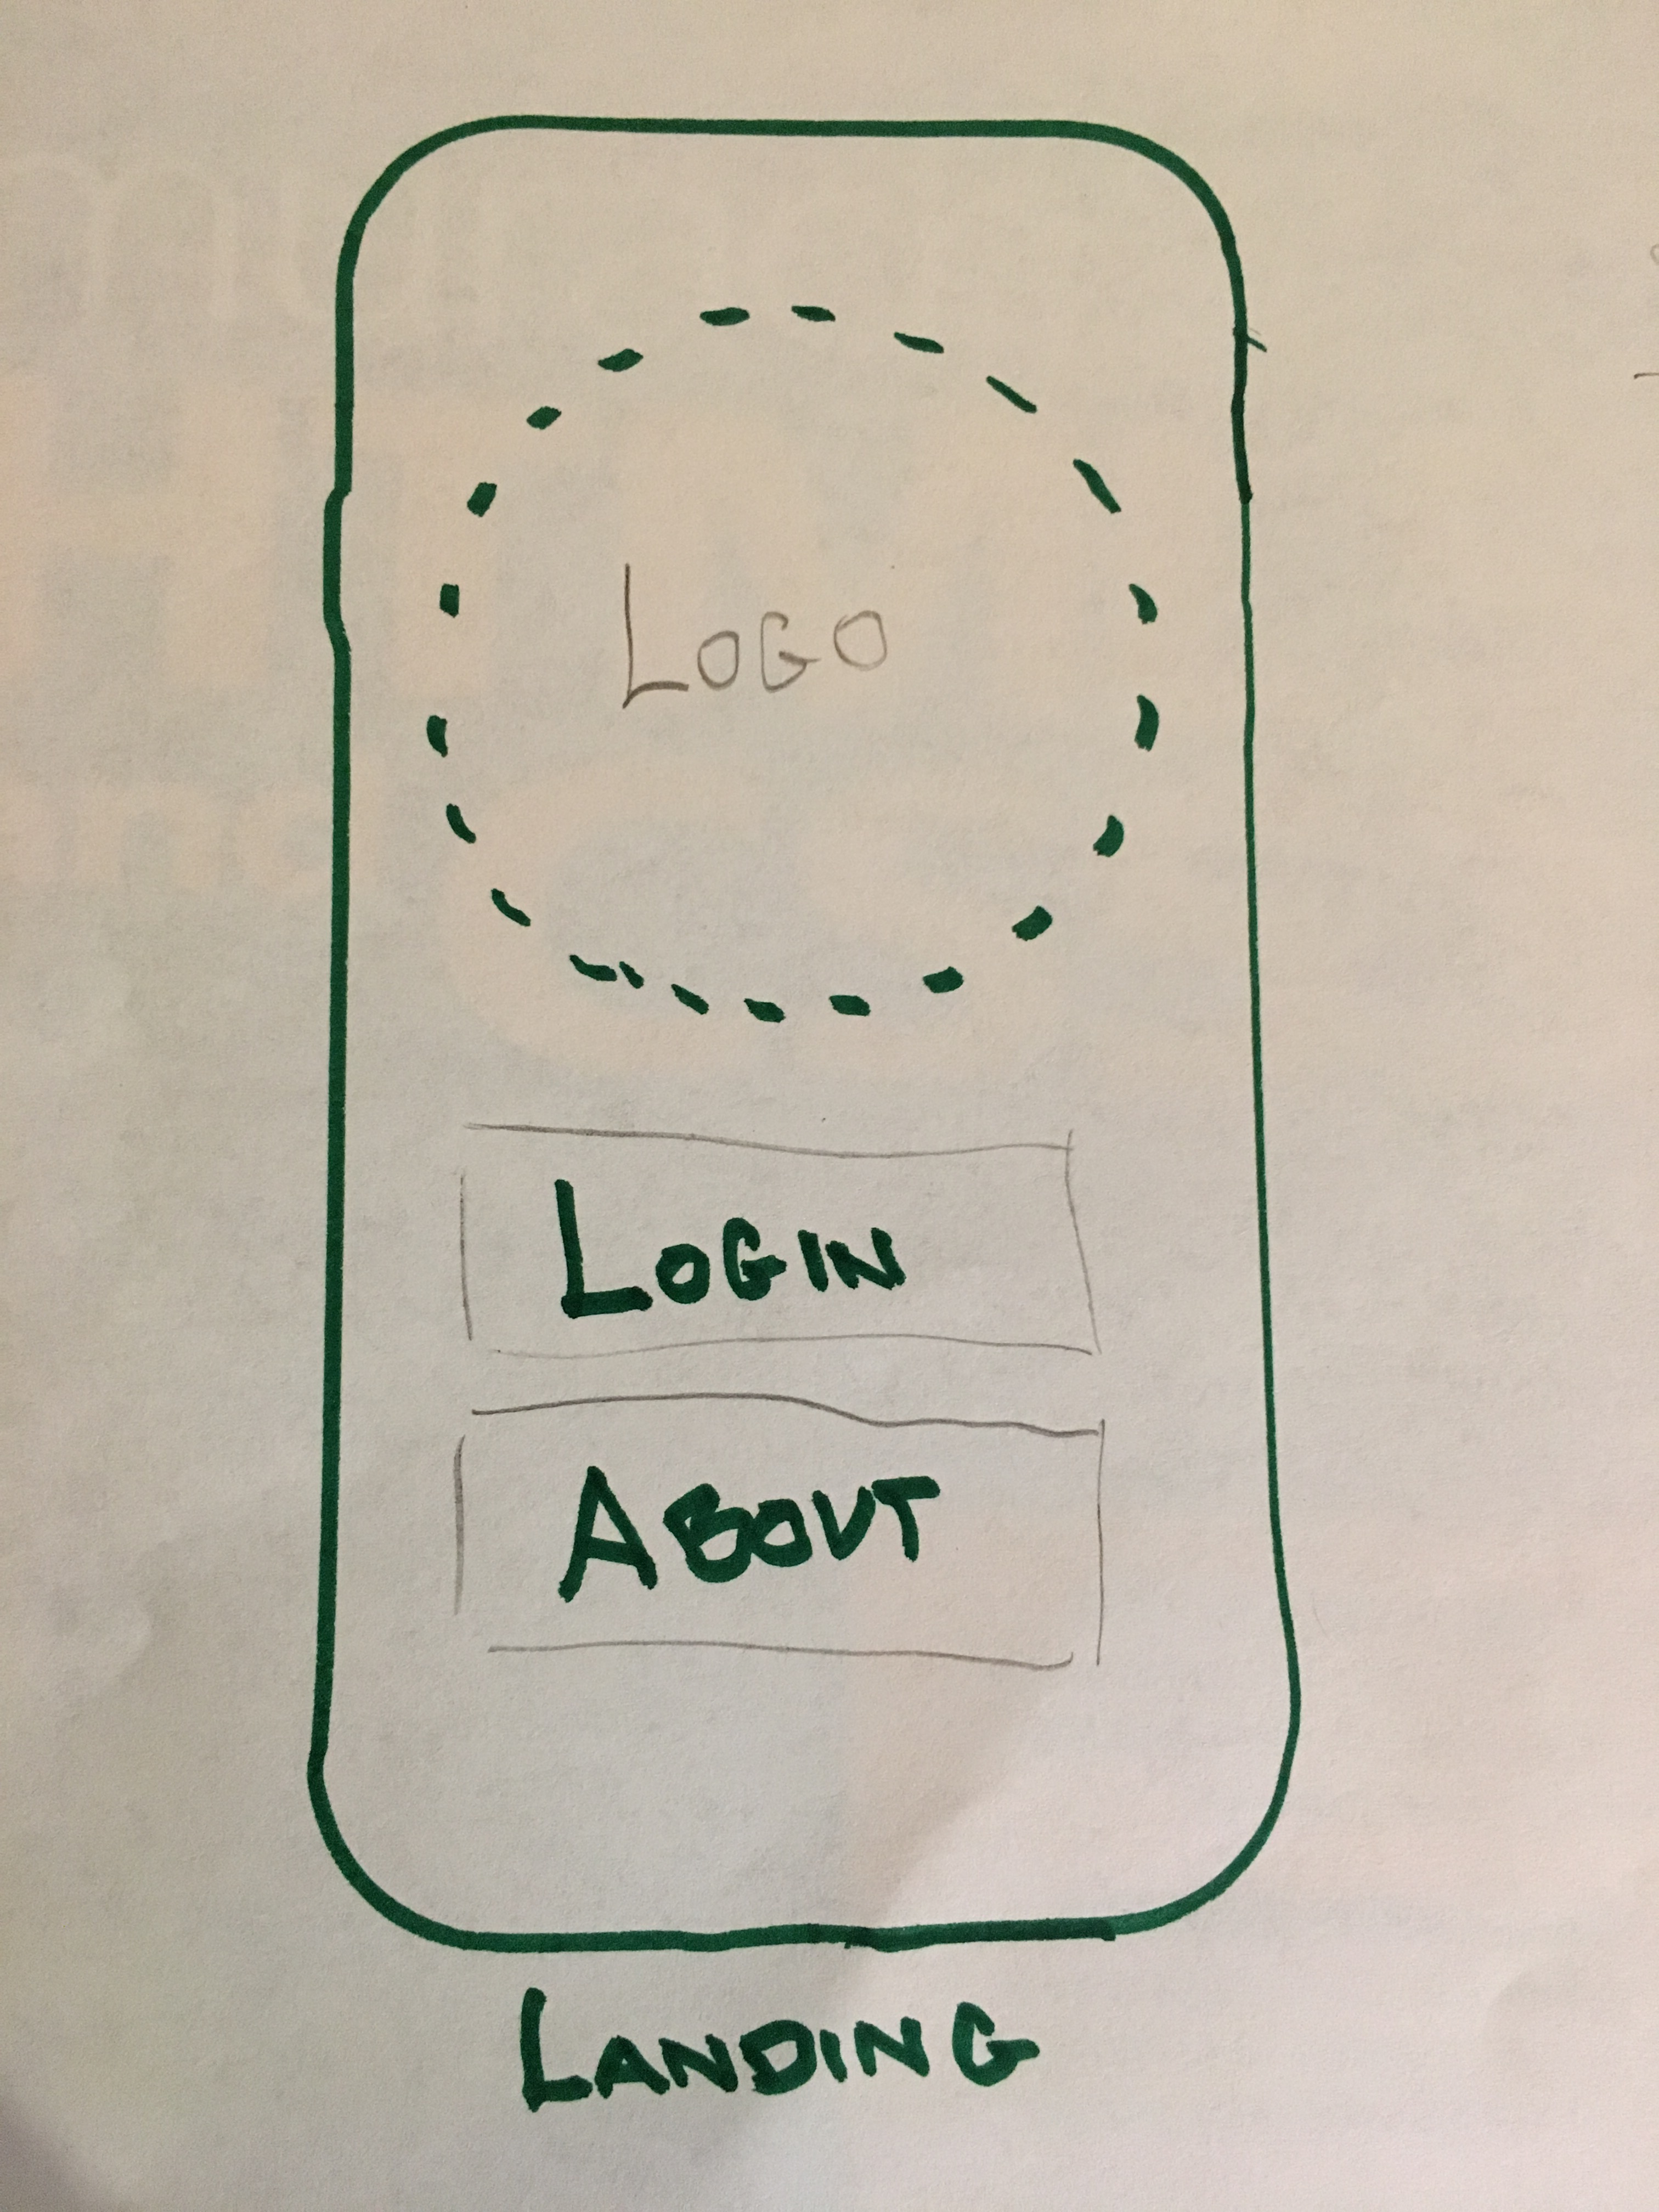 LOGO
LOGIN
ABOUT
LANDING